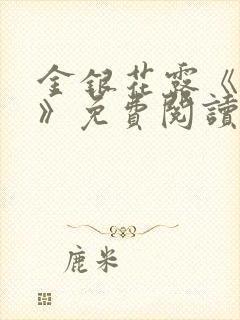 金銀花露《
》免費閱讀
鹿米